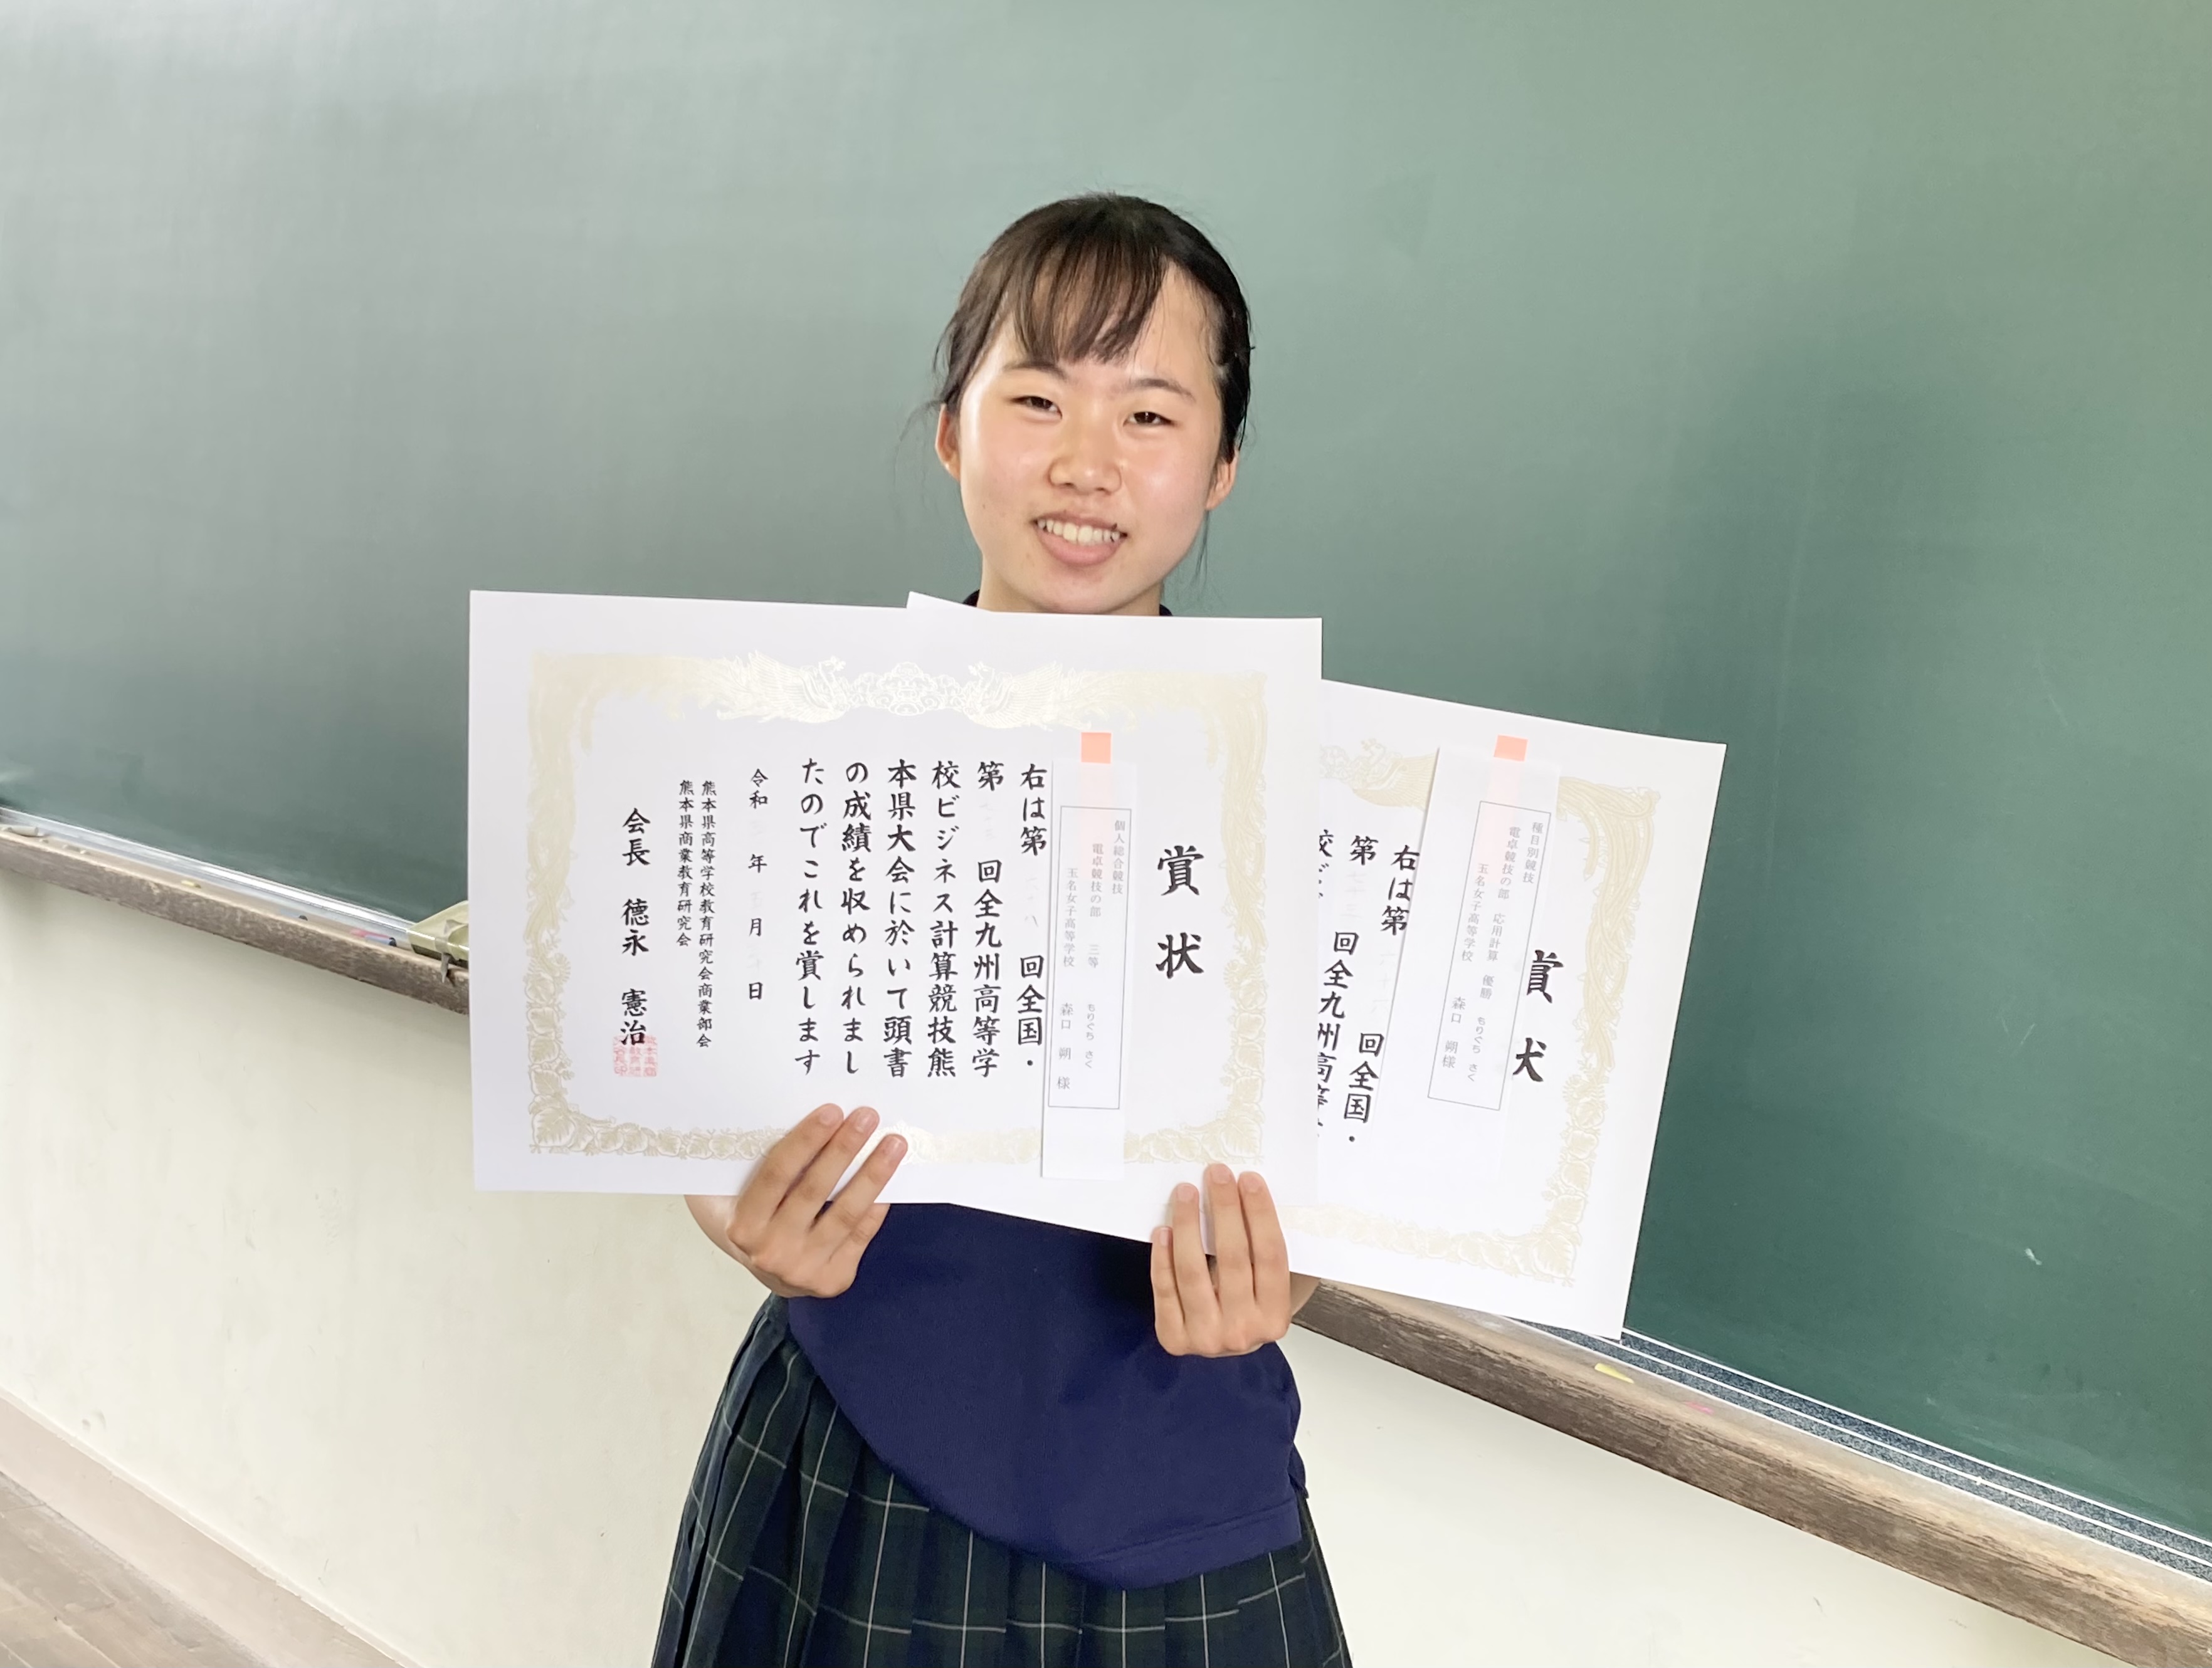 賞状
個人総合競技
電卓競技の部 三等
もりぐち さく
玉名女子高等学校 森口 朔 様
右は第 回全国・
第 回全九州高等学
校ビジネス計算競技熊
本県大会に於いて頭書
の成績を収められまし
たのでこれを賞します
令和 年 月 日
熊本県高等学校教育研究会商業部会
熊本県商業教育研究会
会長 德永 憲治
賞状
種目別競技
電卓競技の部 応用計算 優勝
もりぐち さく
玉名女子高等学校 森口 朔 様
右は第 回全国・
第 回全九州高等
校ビ